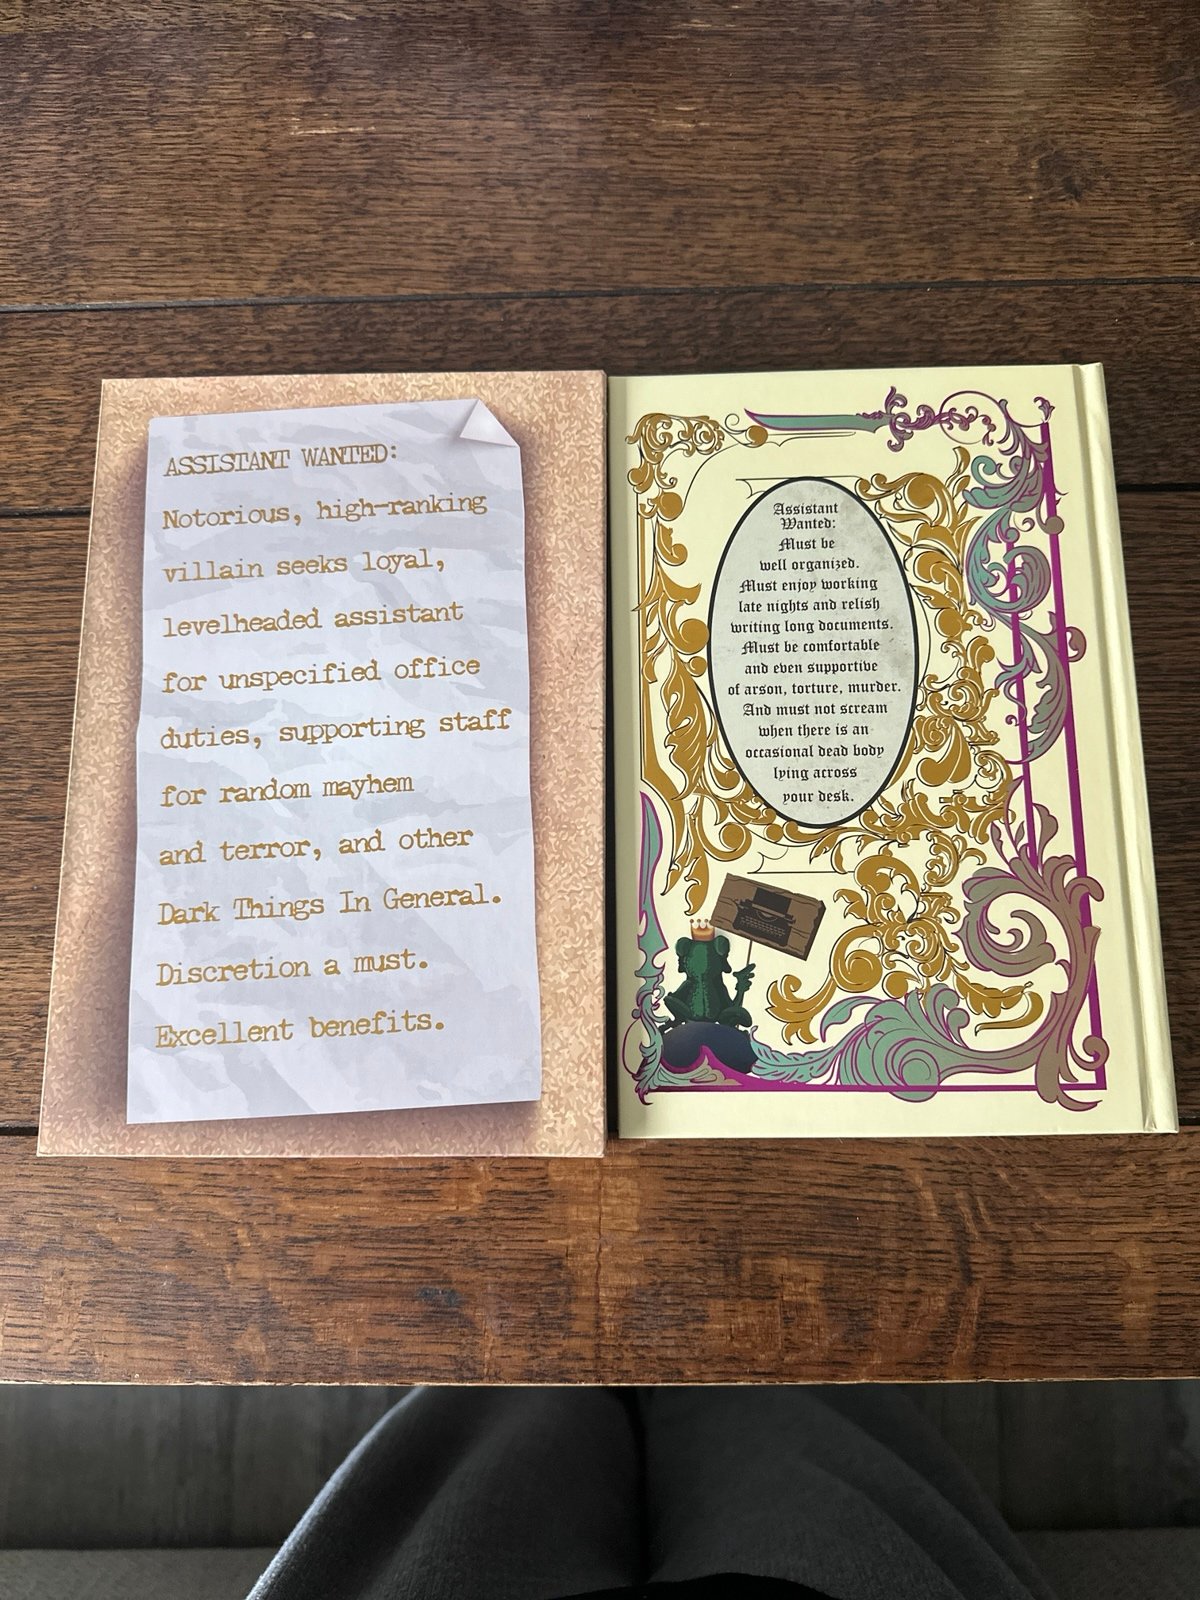 ASSISTANT WANTED:
Notorious, high-ranking
villain seeks loyal,
levelheaded assistant
for unspecified office
duties, supporting staff
for random mayhem
and terror, and other
Dark Things In General.
Discretion a must.
Excellent benefits.
Assistant
Wanted:
Must be
well organized.
Must enjoy working
late nights and relish
writing long documents.
Must be comfortable
and even supportive
of arson, torture, murder.
And must not scream
when there is an
occasional dead body
lying across
your desk.